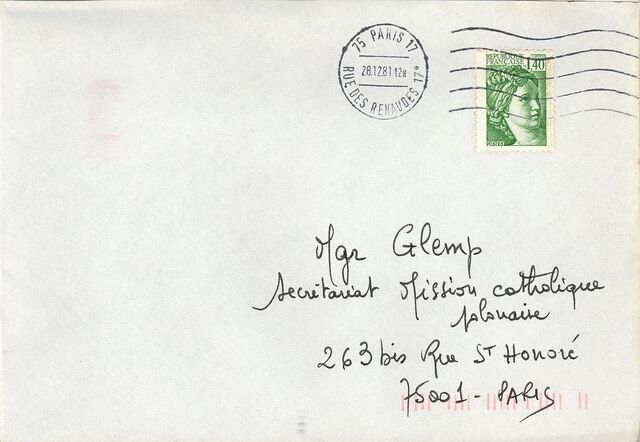 75 PARIS 17
28.12.81 12H
RUE DES RENAUDES 17e
REPUBLIQUE
FRANÇAISE
1,40
POSTES
Mgr Glemp
Secrétariat Mission catholique
polonaise
263 bis Rue St Honoré
75001 - PARIS